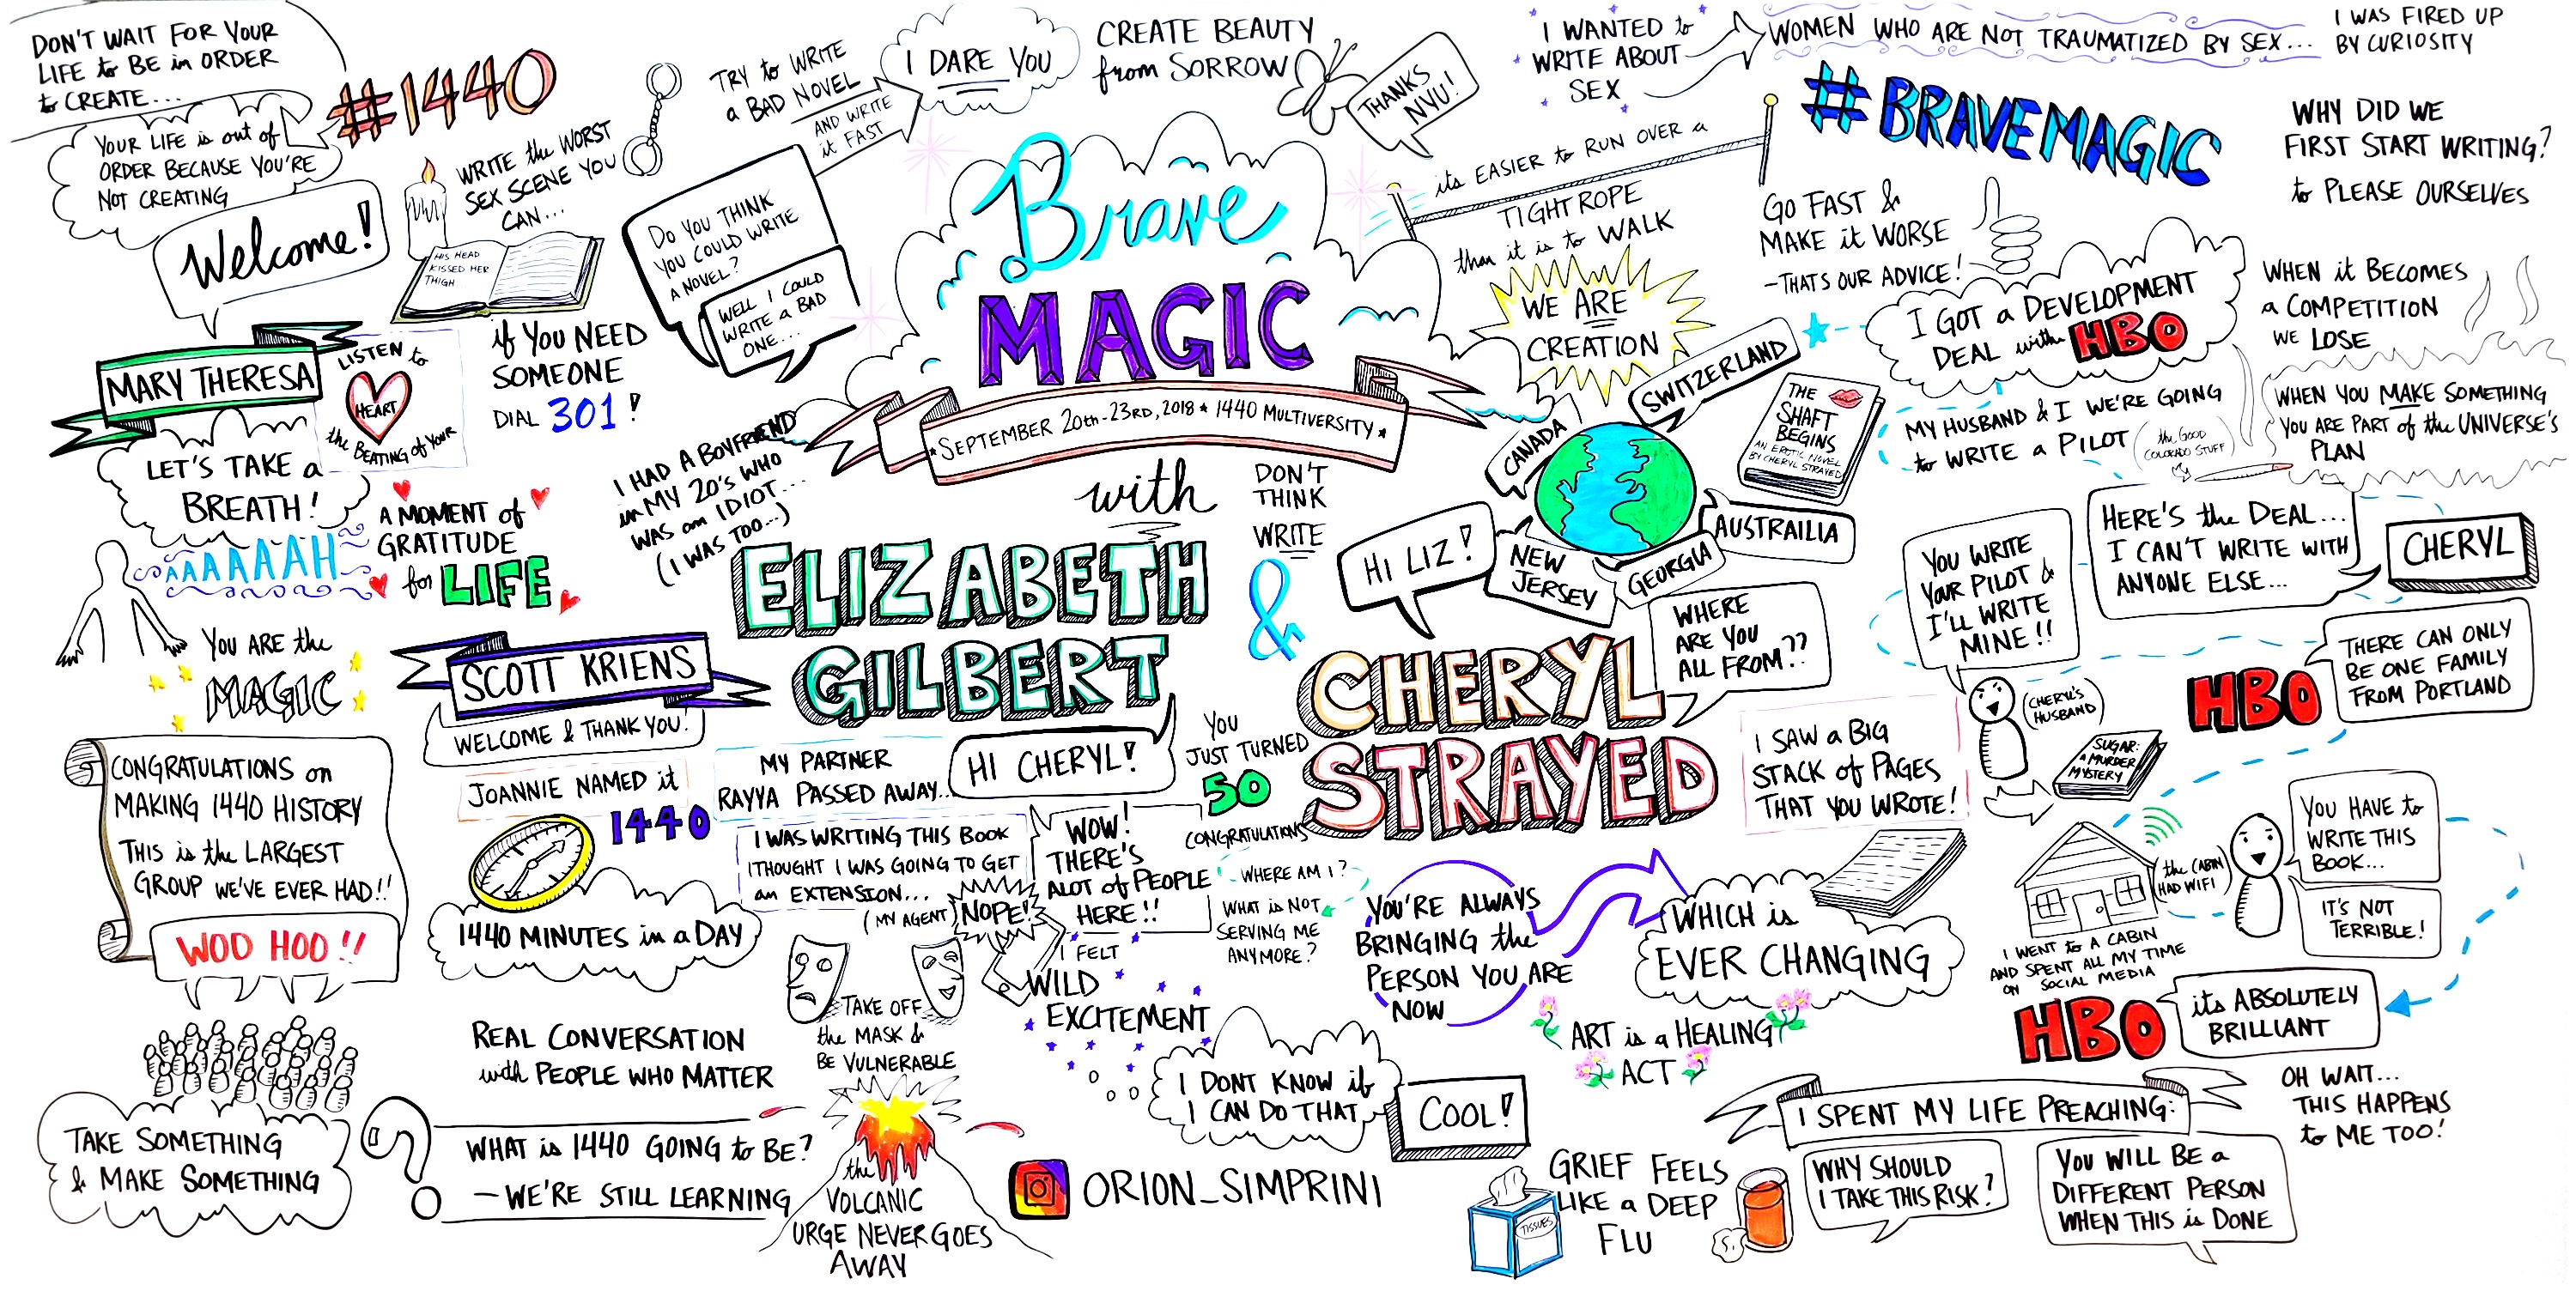 DON'T WAIT FOR YOUR
LIFE to BE in ORDER
to CREATE...
YOUR LIFE is out of
ORDER BECAUSE YOU'RE
NOT CREATING
#1440
Welcome!
MARY THERESA
LISTEN to
HEART
the BEATING of YOUR
LET'S TAKE a
BREATH!
AAAAAAH
A MOMENT of
GRATITUDE
for LIFE
YOU ARE the
MAGIC
WRITE the WORST
SEX SCENE YOU
CAN...
HIS HEAD
KISSED HER
THIGH
if YOU NEED
SOMEONE
DIAL 301!
TRY to WRITE
a BAD NOVEL
AND WRITE
it FAST
I DARE YOU
DO YOU THINK
YOU COULD WRITE
A NOVEL?
WELL I COULD
WRITE a BAD
ONE...
CREATE BEAUTY
from SORROW
THANKS
NYU!
I HAD A BOYFRIEND
in MY 20'S WHO
WAS an IDIOT...
(I WAS TOO...)
Brave
MAGIC
★SEPTEMBER 20th-23RD, 2018 ★ 1440 MULTIVERSITY★
with
ELIZABETH
GILBERT
&
CHERYL
STRAYED
DON'T
THINK
WRITE
I WANTED to
WRITE ABOUT
SEX
WOMEN WHO ARE NOT TRAUMATIZED BY SEX...
I WAS FIRED UP
BY CURIOSITY
#BRAVEMAGIC
WHY DID WE
FIRST START WRITING?
to PLEASE OURSELVES
its EASIER to RUN OVER a
TIGHTROPE
than it is to WALK
WE ARE
CREATION
GO FAST &
MAKE it WORSE
-THATS OUR ADVICE!
I GOT a DEVELOPMENT
DEAL with HBO
WHEN it BECOMES
a COMPETITION
WE LOSE
WHEN YOU MAKE SOMETHING
YOU ARE PART of the UNIVERSE'S
PLAN
SWITZERLAND
CANADA
AUSTRAILIA
GEORGIA
NEW
JERSEY
HI LIZ!
WHERE
ARE YOU
ALL FROM??
THE
SHAFT
BEGINS
AN EROTIC NOVEL
BY CHERYL STRAYED
MY HUSBAND & I WE'RE GOING
to WRITE a PILOT
(the GOOD
COLORADO STUFF)
HERE'S the DEAL...
I CAN'T WRITE WITH
ANYONE ELSE...
CHERYL
YOU WRITE
YOUR PILOT &
I'LL WRITE
MINE!!
(CHERYL'S
HUSBAND)
HBO
THERE CAN ONLY
BE ONE FAMILY
FROM PORTLAND
SUGAR:
a MURDER
MYSTERY
SCOTT KRIENS
WELCOME & THANK YOU!
JOANNIE NAMED it
1440
1440 MINUTES in a DAY
CONGRATULATIONS on
MAKING 1440 HISTORY
THIS is the LARGEST
GROUP WE'VE EVER HAD!!
WOO HOO!!
TAKE SOMETHING
& MAKE SOMETHING
REAL CONVERSATION
with PEOPLE WHO MATTER
WHAT is 1440 GOING to BE?
-WE'RE STILL LEARNING
MY PARTNER
RAYYA PASSED AWAY...
I WAS WRITING THIS BOOK
I THOUGHT I WAS GOING TO GET
an EXTENSION...
(MY AGENT) NOPE!
HI CHERYL!
WOW!
THERE'S
ALOT of PEOPLE
HERE!!
YOU
JUST TURNED
50
CONGRATULATIONS
WHERE AM I?
WHAT is NOT
SERVING ME
ANYMORE?
TAKE OFF
the MASK &
BE VULNERABLE
I FELT
WILD
EXCITEMENT
the
VOLCANIC
URGE NEVER GOES
AWAY
I DONT KNOW if
I CAN DO THAT
COOL!
ORION_SIMPRINI
YOU'RE ALWAYS
BRINGING the
PERSON YOU ARE
NOW
WHICH is
EVER CHANGING
I SAW a BIG
STACK of PAGES
THAT YOU WROTE!
ART is a HEALING
ACT
GRIEF FEELS
LIKE a DEEP
FLU
TISSUES
(the CABIN
HAD WIFI)
I WENT to A CABIN
AND SPENT ALL MY TIME
ON SOCIAL MEDIA
YOU HAVE to
WRITE THIS
BOOK...
IT'S NOT
TERRIBLE!
HBO
its ABSOLUTELY
BRILLIANT
I SPENT MY LIFE PREACHING:
WHY SHOULD
I TAKE THIS RISK?
YOU WILL BE a
DIFFERENT PERSON
WHEN THIS is DONE
OH WAIT...
THIS HAPPENS
to ME TOO!